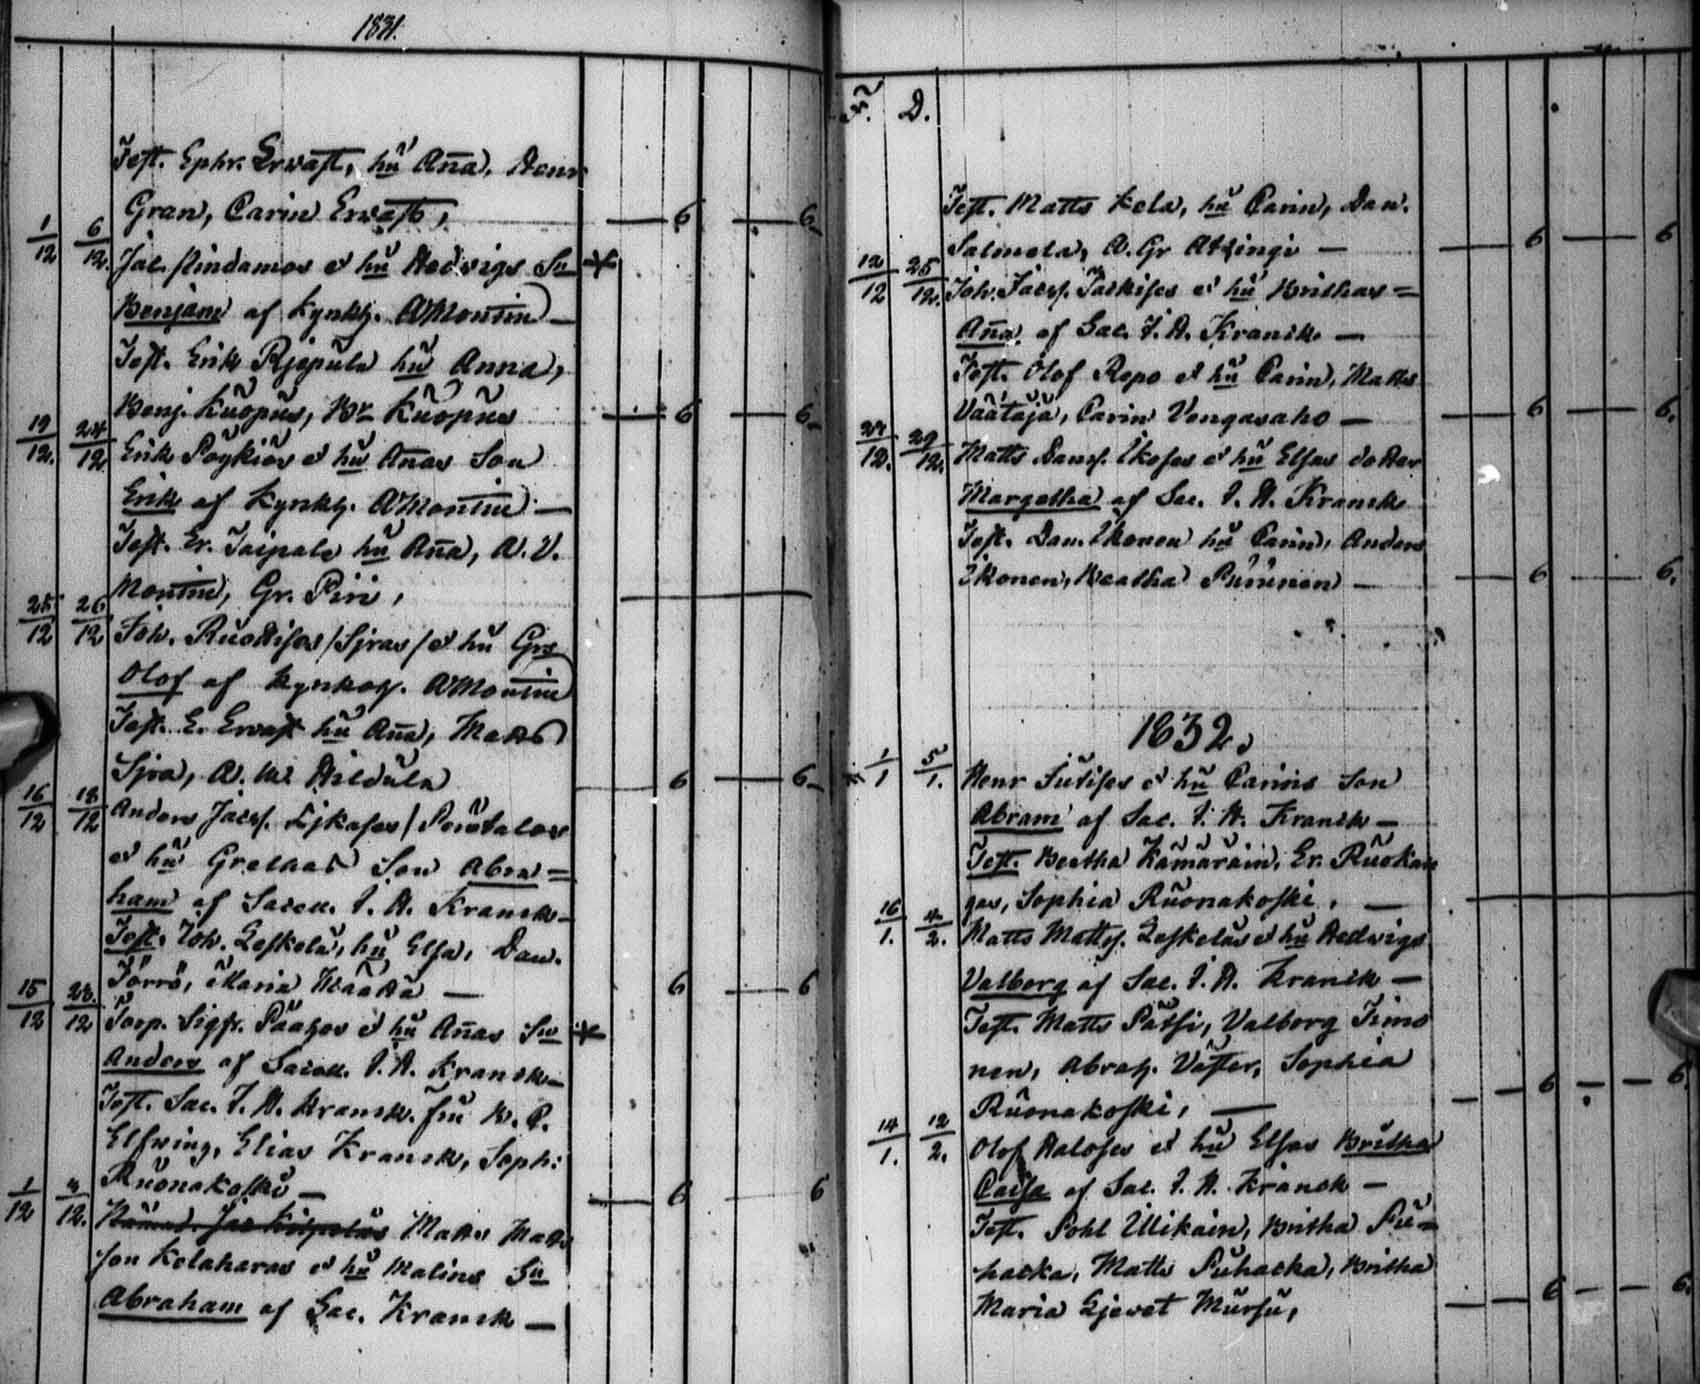 1831.
Test. Ephr. Ervast, hu Aña, Henr
Gran, Carin Ervast, — 6 — 6
1/12 6/12 Jac. Pindamos et hu Hedvigs Sn
Benjam af Kynkh. A Montin —
Test. Erik Rjepula hu Anna,
Benj. Kuopus, Br Kuopus — 6 — 6
19/12 24/12 Erik Pöykiös et hu Añas Son
Erik af Kynkh. A Montin —
Test. Er. Taipale hu Aña, A. V.
Montin, Gr. Piri,
25/12 26/12 Joh. /Sjras/ et hu Gre
Olof af Kynkh. A Montin
Test. E. Ervast hu Aña, Matts
Sjra, A. M. — 6 — 6
16/12 18/12 Anders Jacss.
et hu Gretas Son Abra=
ham af Sacell. J. A. Kranck —
Test. Joh. Leskelä, hu Elsa, Dan.
Törrö, Maria — 6 — 6
15/12 Torp. Sigfr. Päätzos et hu Añas Sn
Anders af Sacell. J. A. Kranck —
Test. Sac. J. A. Kranck. fru B. P.
Elfving, Elias Kranck, Soph:
Ruonakoski — 6 — 6
1/12 4/12. Matts Matts
son Kelaharas et hu Malins Sn
Abraham af Sac. Kranck —
N. D.
Test. Matts Kela, hu Carin, Dan.
Salmela, A. Gr Atzingi — 6 — 6
12/12 25/12. Joh. Jacss. et hu Brithas =
Aña af Sac. J. A. Kranck —
Test. Olof Repo et hu Carin, Matts
Väätäjä, Carin Vengasaho — 6 — 6.
27/12. 29/12. Matts Danss. Ikoses et hu Elsas dotter
Margetha af Sac. J. A. Kranck
Test. Dan. Ikonen hu Carin, Anders
Ikonen, Beatha — 6 — 6.
1832.
1/1 5/1. Henr et hu Carins Son
Abram af Sac. J. A. Kranck —
Test. Beatha Kämäräin, Er. Ruokan
gas, Sophia Ruonakoski, —
16/1. 4/2. Matts Mattss. Leskeläs et hu Hedvigs
Valborg af Sac. J. A. Kranck —
Test. Matts Pätsi, Valborg Timo
nen, Abrah. Väster, Sophia
Ruonakoski, — 6 — 6.
14/1. 12/2. Olof Haloses et hu Elsas Britha
Caisa af Sac. J. A. Kranck —
Test. Pohl Ulikain, Britha Pu=
hacka, Matts Puhacka, Britha
Maria Mursu, — 6 — 6.